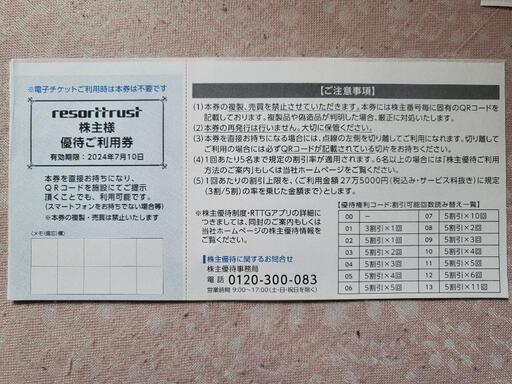 ※電子チケットご利用時は本券は不要です
resorttrust
株主様
優待ご利用券
有効期限：2024年7月10日
本券を直接お持ちになり、
QRコードを施設にてご提示
頂くことでも、利用可能です。
(スマートフォンをお持ちでない場合等)
※本券の複製・売買は禁止いたします
〈メモ(備忘)欄〉
【ご注意事項】
(1)本券の複製、売買を禁止させていただきます。本券には株主番号毎に固有のQRコードを
記載しております。複製品や偽造品が判明した場合、厳正に対処いたします。
(2)本券の再発行は行いません。大切に保管ください。
(3)本券を直接お持ちになる場合には、点線の左側を切り離してご利用になれます。切り離して
ご利用の場合には必ずQRコードが記載されている切片をお持ちください。
(4)1回あたり5名まで規定の割引率が適用されます。6名以上の場合には「株主優待ご利用
方法のご案内」もしくは当社ホームページをご覧ください。
(5)1回あたりの割引上限を、(ご利用金額27万5000円(税込み・サービス料抜き)に規定
(3割/5割)の率を乗じた金額まで)とします。
※株主優待制度・RTTGアプリの詳細に
つきましては、同封のご案内もしくは
当社ホームページの株主優待情報を
ご覧ください。
株主優待に関するお問合せ
株主優待事務局
電話 0120-300-083
営業時間 9:00~17:00(土・日・祝日を除く)
【優待権利コード：割引可能回数読み替え一覧】
00 － 07 5割引×10回
01 3割引×1回 08 5割引×2回
02 3割引×2回 09 5割引×3回
03 5割引×1回 10 5割引×4回
04 5割引×3回 11 5割引×5回
05 5割引×4回 12 5割引×6回
06 5割引×5回 13 5割引×11回